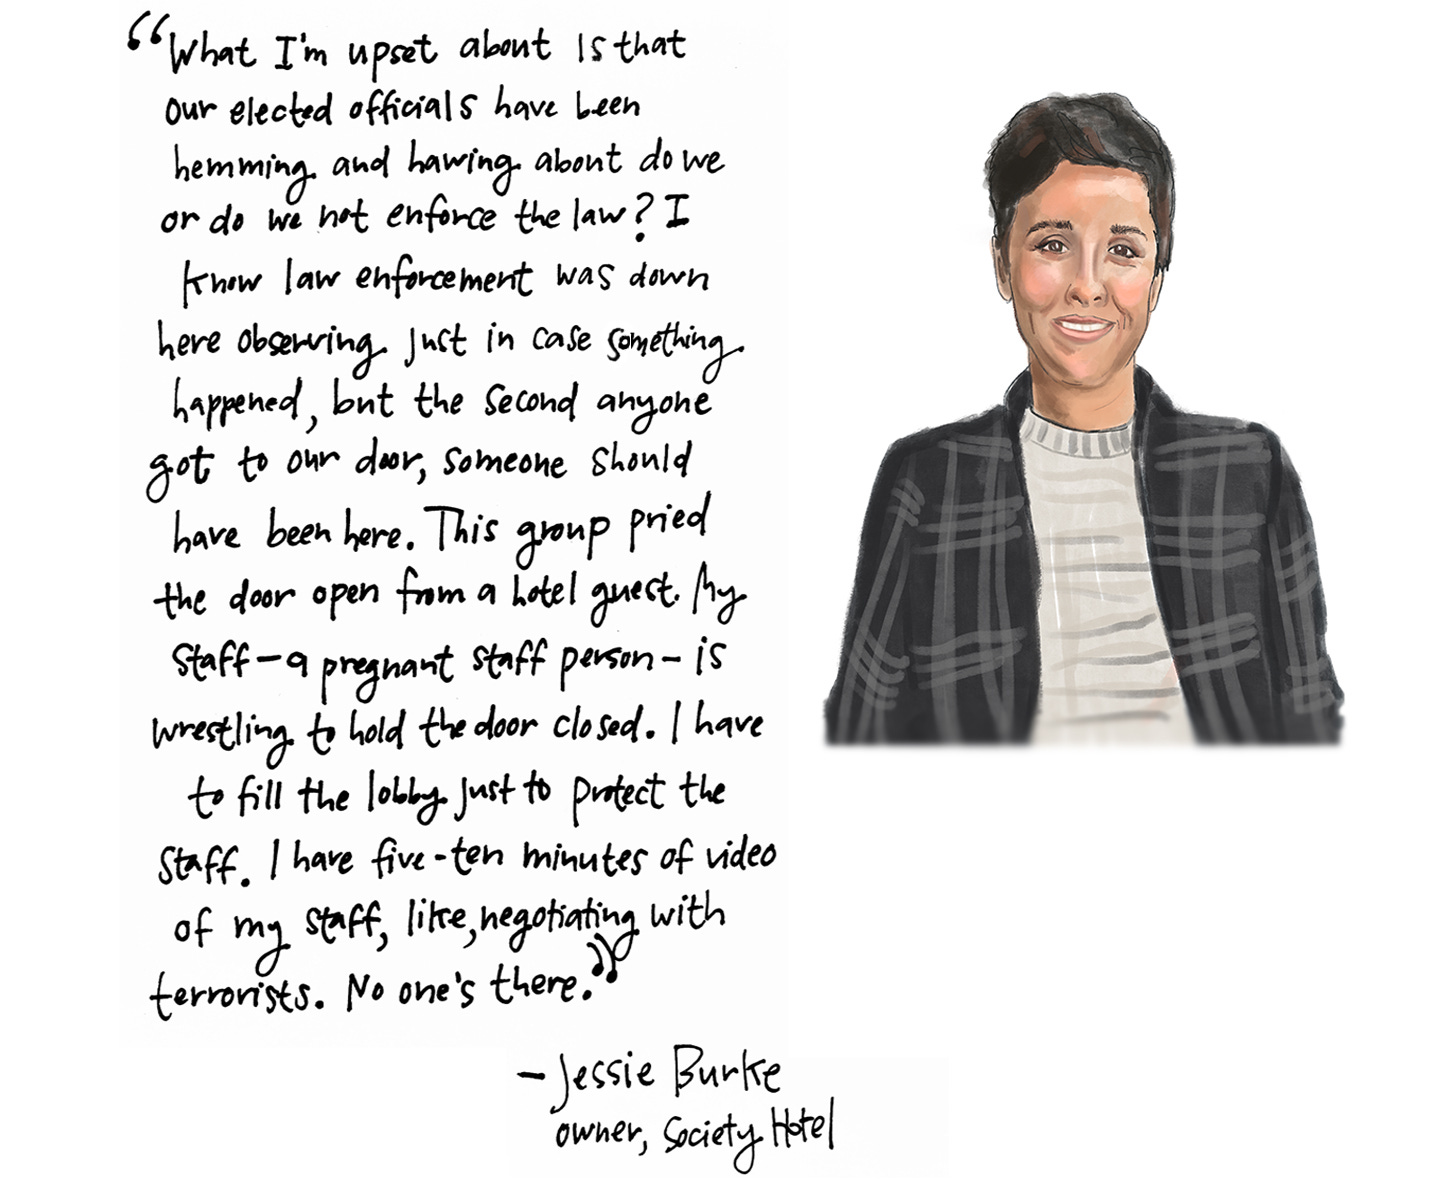 “What I'm upset about is that
our elected officials have been
hemming and hawing about do we
or do we not enforce the law? I
know law enforcement was down
here observing just in case something
happened, but the second anyone
got to our door, someone should
have been here. This group pried
the door open from a hotel guest. My
staff—a pregnant staff person—is
wrestling to hold the door closed. I have
to fill the lobby just to protect the
staff. I have five-ten minutes of video
of my staff, like, negotiating with
terrorists. No one's there.”
— Jessie Burke
owner, Society Hotel